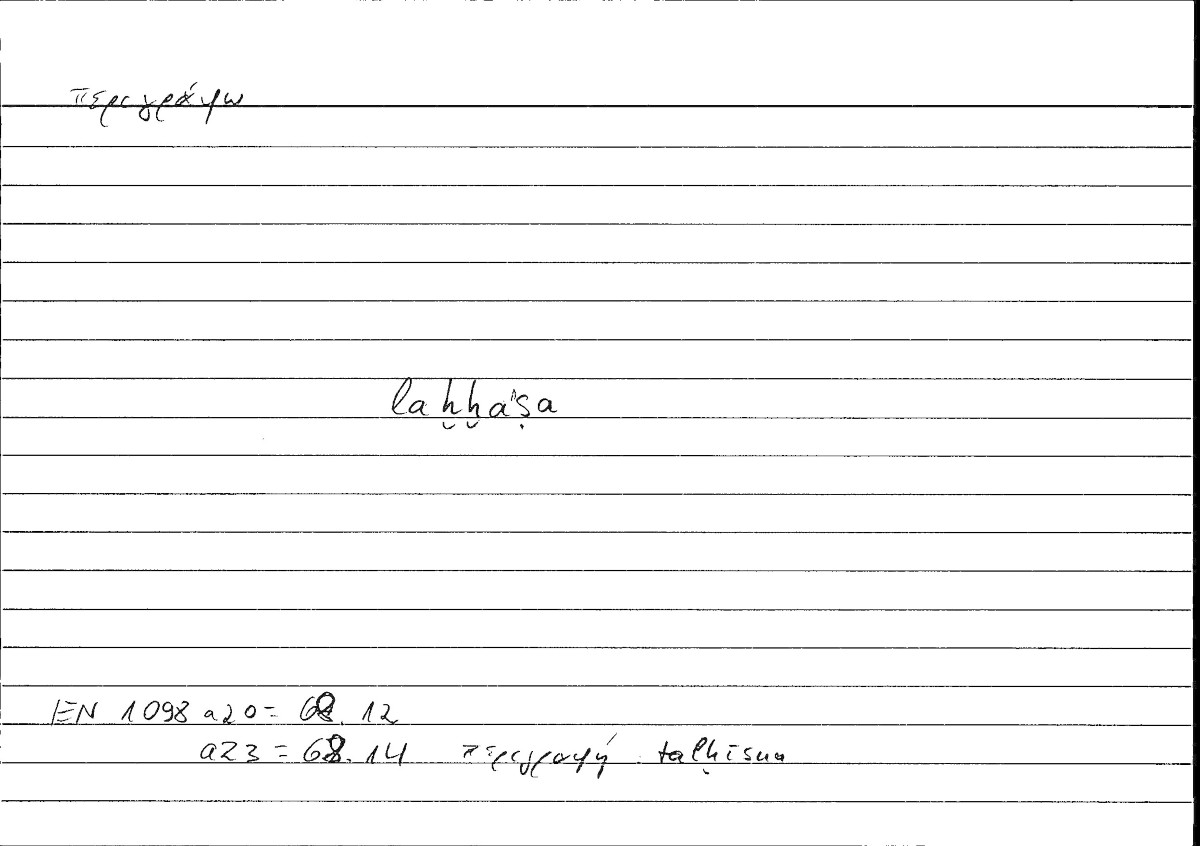 περιγράφω
laḫḫaṣa
EN 1098 a20 = 68.12
a23 = 68.14 περιγραφή talḫīsun